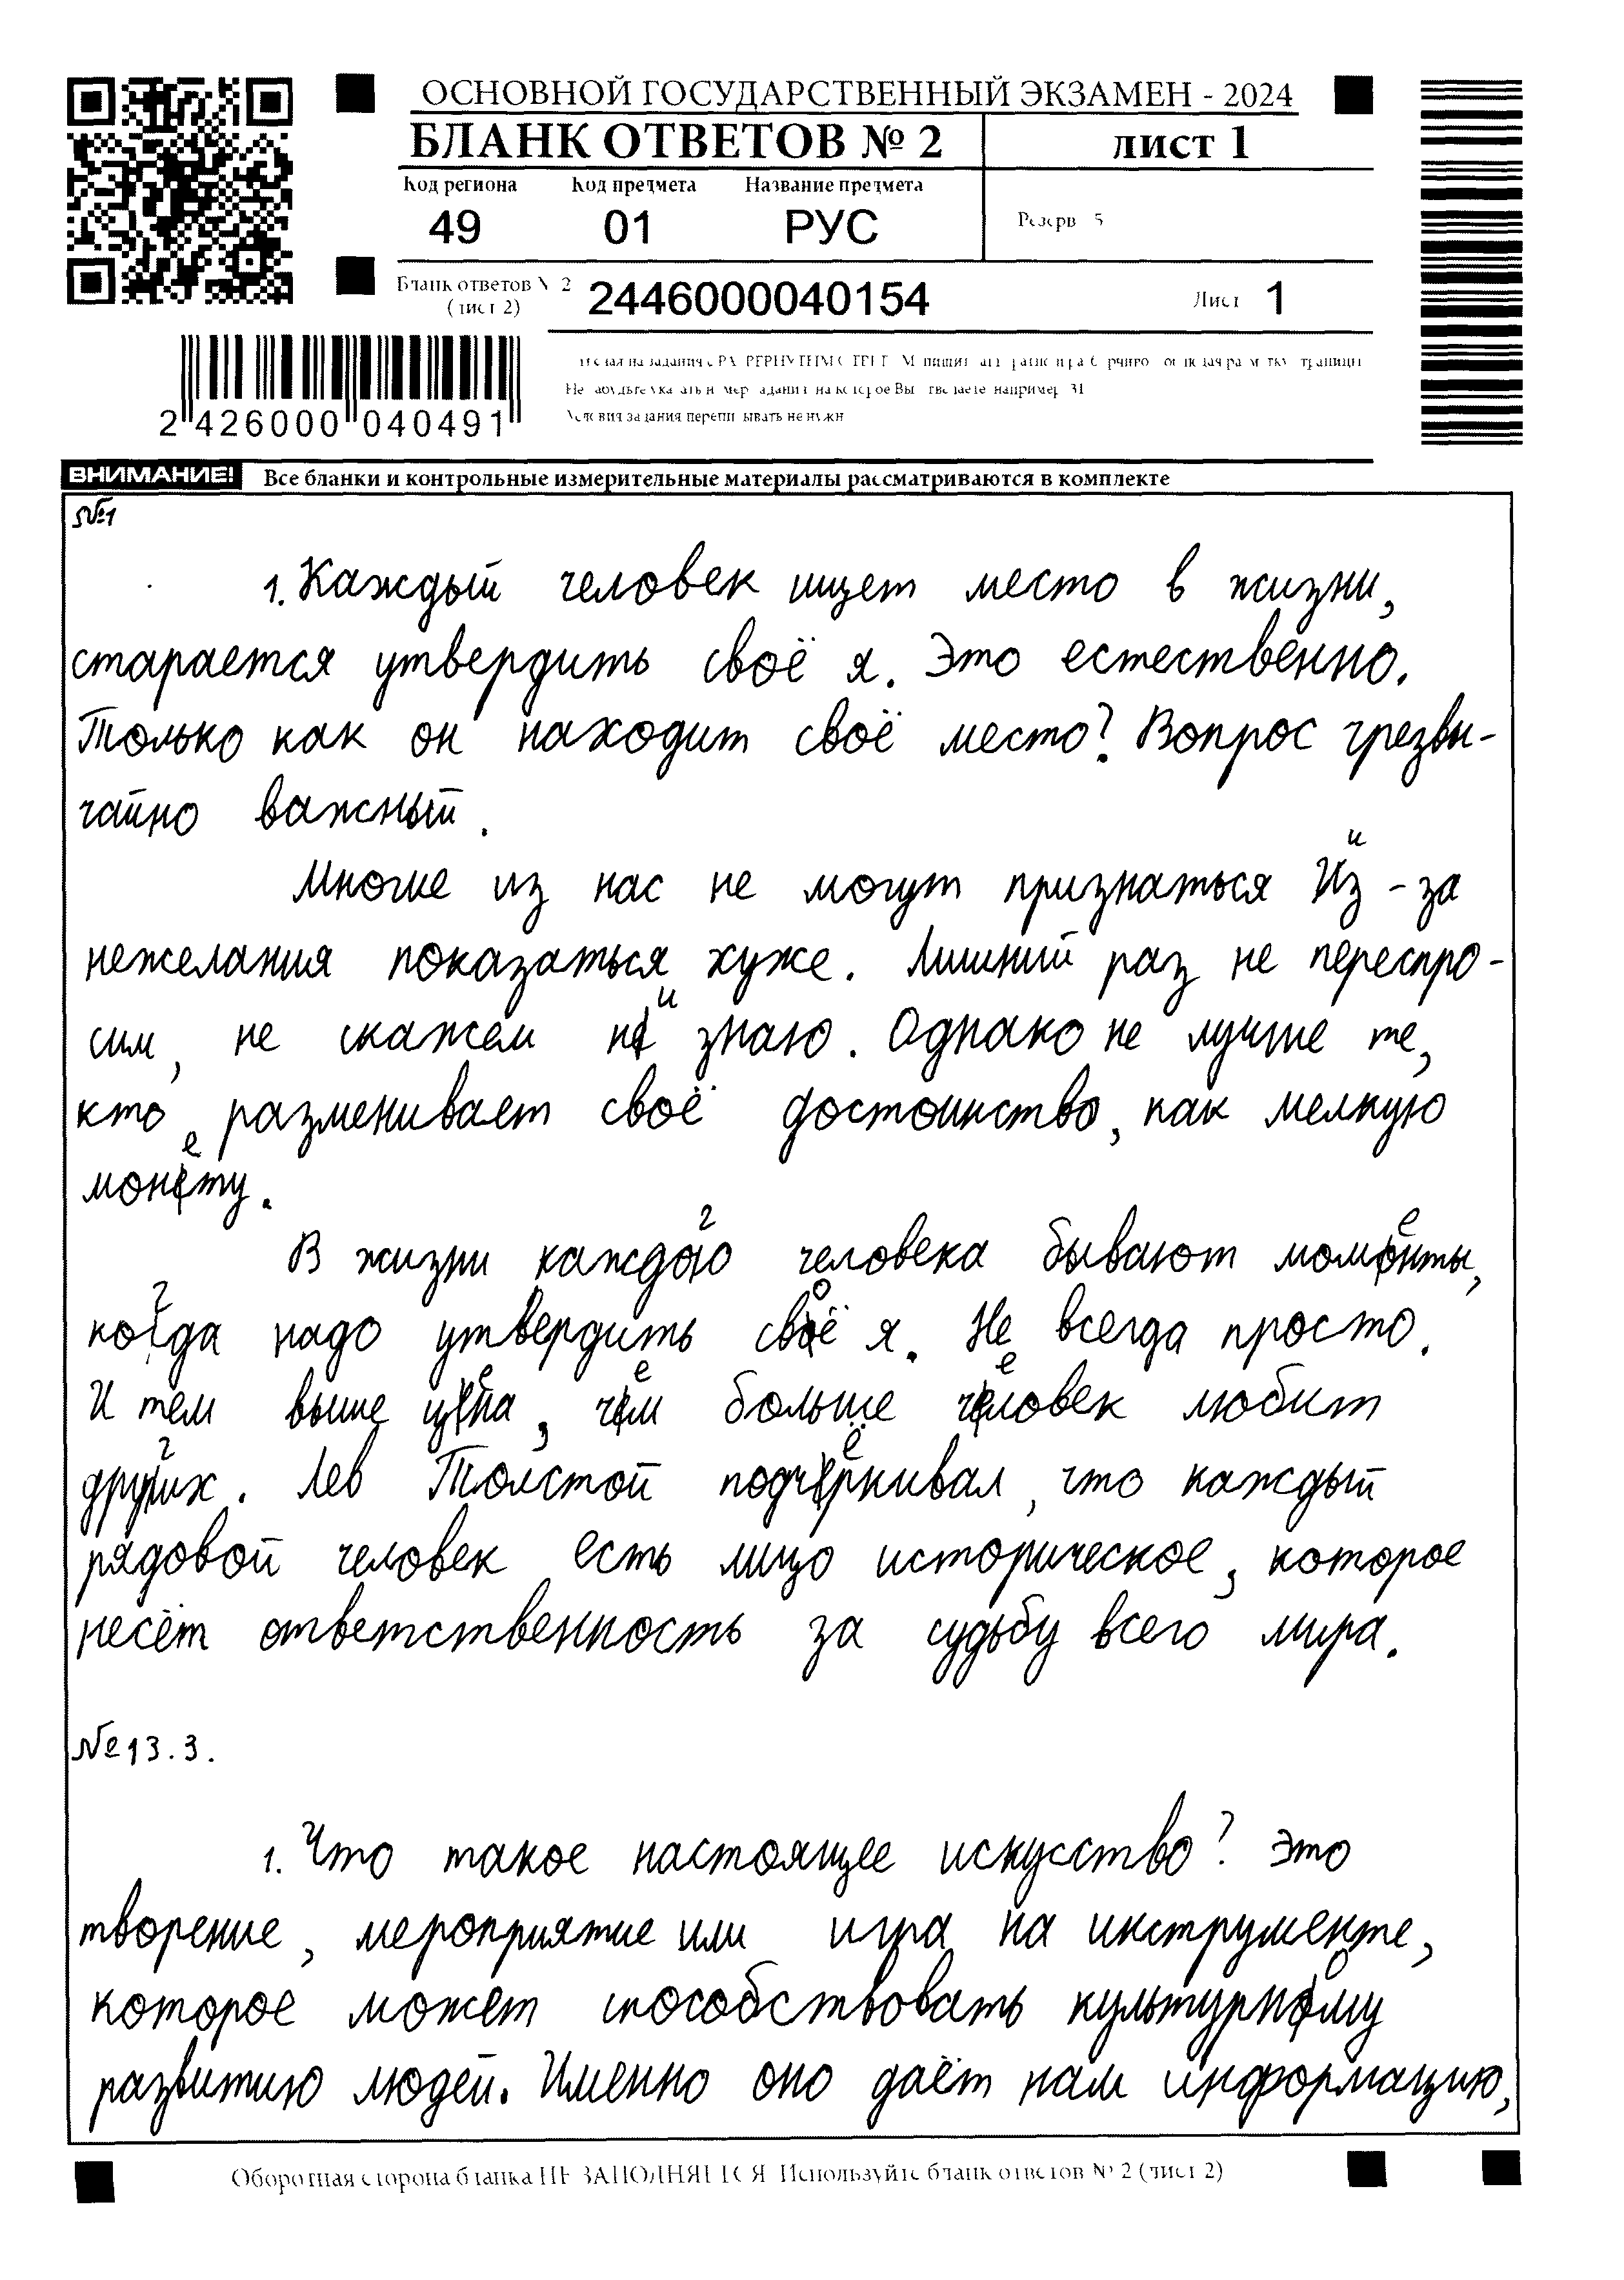 ОСНОВНОЙ ГОСУДАРСТВЕННЫЙ ЭКЗАМЕН - 2024
БЛАНК ОТВЕТОВ № 2
лист 1
Код региона Код предмета Название предмета
49 01 РУС
Резерв 5
Бланк ответов № 2 (лист 2)
2446000040154
Лист 1
2 426000 040491
Условия задания переписывать не нужн
ВНИМАНИЕ! Все бланки и контрольные измерительные материалы рассматриваются в комплекте
№1
1. Каждый человек ищет место в жизни,
старается утвердить своё я. Это естественно.
Только как он находит своё место? Вопрос чрезвы-
чайно важный.
Многие из нас не могут признаться из-за
нежелания показаться хуже. Лишний раз не переспро-
сим, не скажем ни знаю. Однако не лучше те,
кто разменивает своё достоинство, как мелкую
монету.
В жизни каждого человека бывают моменты,
когда надо утвердить своё я. Не всегда просто.
И тем выше цена, чем больше человек любит
других. Лев Толстой подчёркивал, что каждый
рядовой человек есть лицо историческое, которое
несёт ответственность за судьбу всего мира.
№13.3.
1. Что такое настоящее искусство? Это
творение, мероприятие или игра на инструменте,
которое может способствовать культурному
развитию людей. Именно оно даёт нам информацию,
Оборотная сторона бланка НЕ ЗАПОЛНЯЕТСЯ. Используйте бланк ответов № 2 (лист 2)